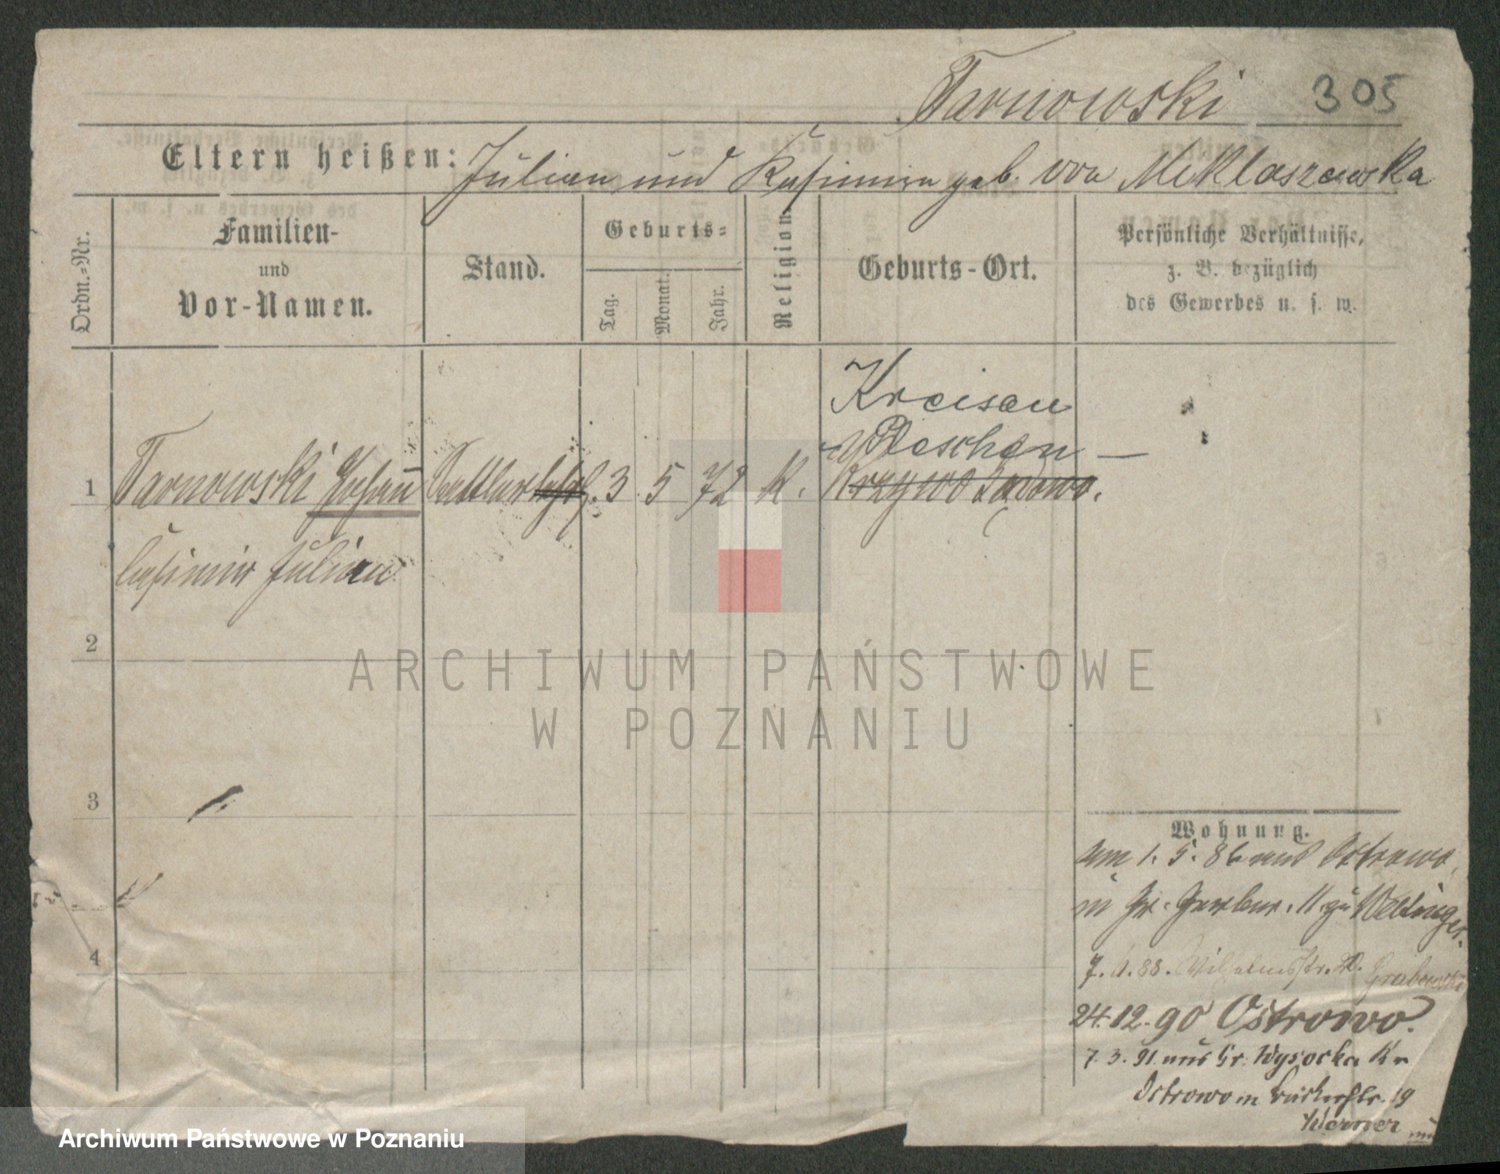 Tarnowski 305
Eltern heißen: Julian und Kasimira geb. von Miklaszewska
Ordn.-Nr.
Familien-
und
Vor-Namen.
Stand.
Geburts-
Tag.
Monat.
Jahr.
Religion.
Geburts-Ort.
Persönliche Verhältnisse,
z. B. bezüglich
des Gewerbes u. s. w.
Kreisen
Pleschen
1 Tarnowski Johann Sattler 3. 5 72 K. Krzywo Sadowo.
Casimir Julian
2
ARCHIWUM PAŃSTWOWE
W POZNANIU
3
Wohnung.
am 1. 5. 86 aus Ostrowo,
in Gr. Gerber. 11 zu
4
7. 88. Wilhelmstr. Grabowski
24.12.90 Ostrowo.
7. 3. 91 aus Gr. Wysocka Kr
Ostrowo in 19
Archiwum Państwowe w Poznaniu